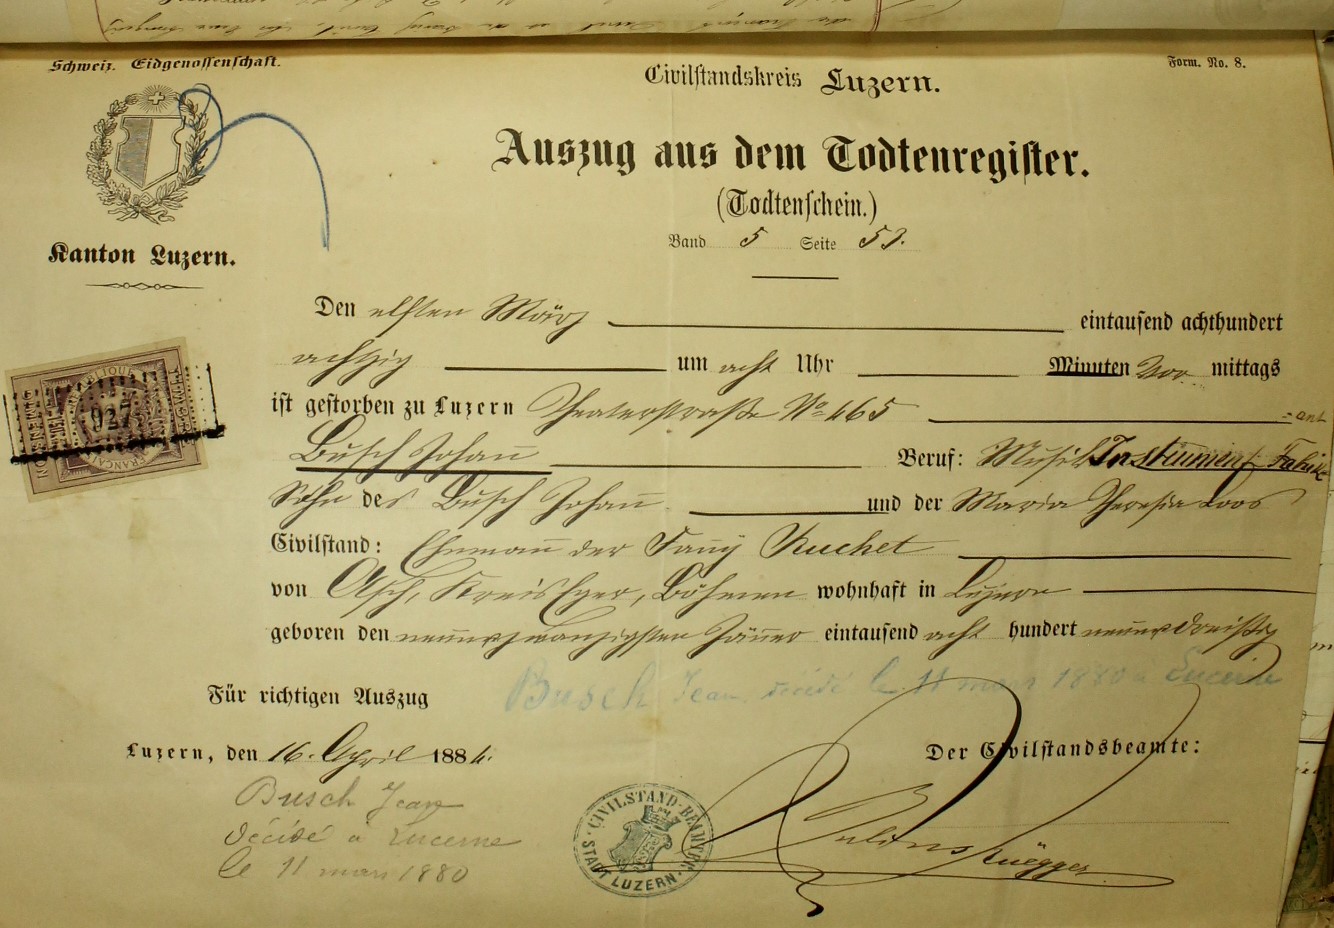 Schweiz. Eidgenossenschaft.
Form. No. 8.
Civilstandskreis Luzern.
Auszug aus dem Todtenregister.
(Todtenschein.)
Band 5 Seite 53.
Kanton Luzern.
Den elften März eintausend achthundert
achtzig um acht Uhr Minuten Vor mittags
ist gestorben zu Luzern Theaterstraße No 465
Busch Johann Beruf: Musik Instrument Fabrik
Sohn des Busch Johann und der Maria Theresia Loos
Civilstand: Ehemann der Fanny Ruchet
von Asch, Kreis Eger, Böhmen wohnhaft in Luzern
geboren den neunundzwanzigsten Jänner eintausend acht hundert neununddreißig
Busch Jean décédé le 11 mars 1880 à Lucerne
Für richtigen Auszug
Luzern, den 16. April 1884.
Der Civilstandsbeamte:
Busch Jean
décédé à Lucerne
le 11 mars 1880
CIVILSTAND-BEAMTUNG
STADT LUZERN
927